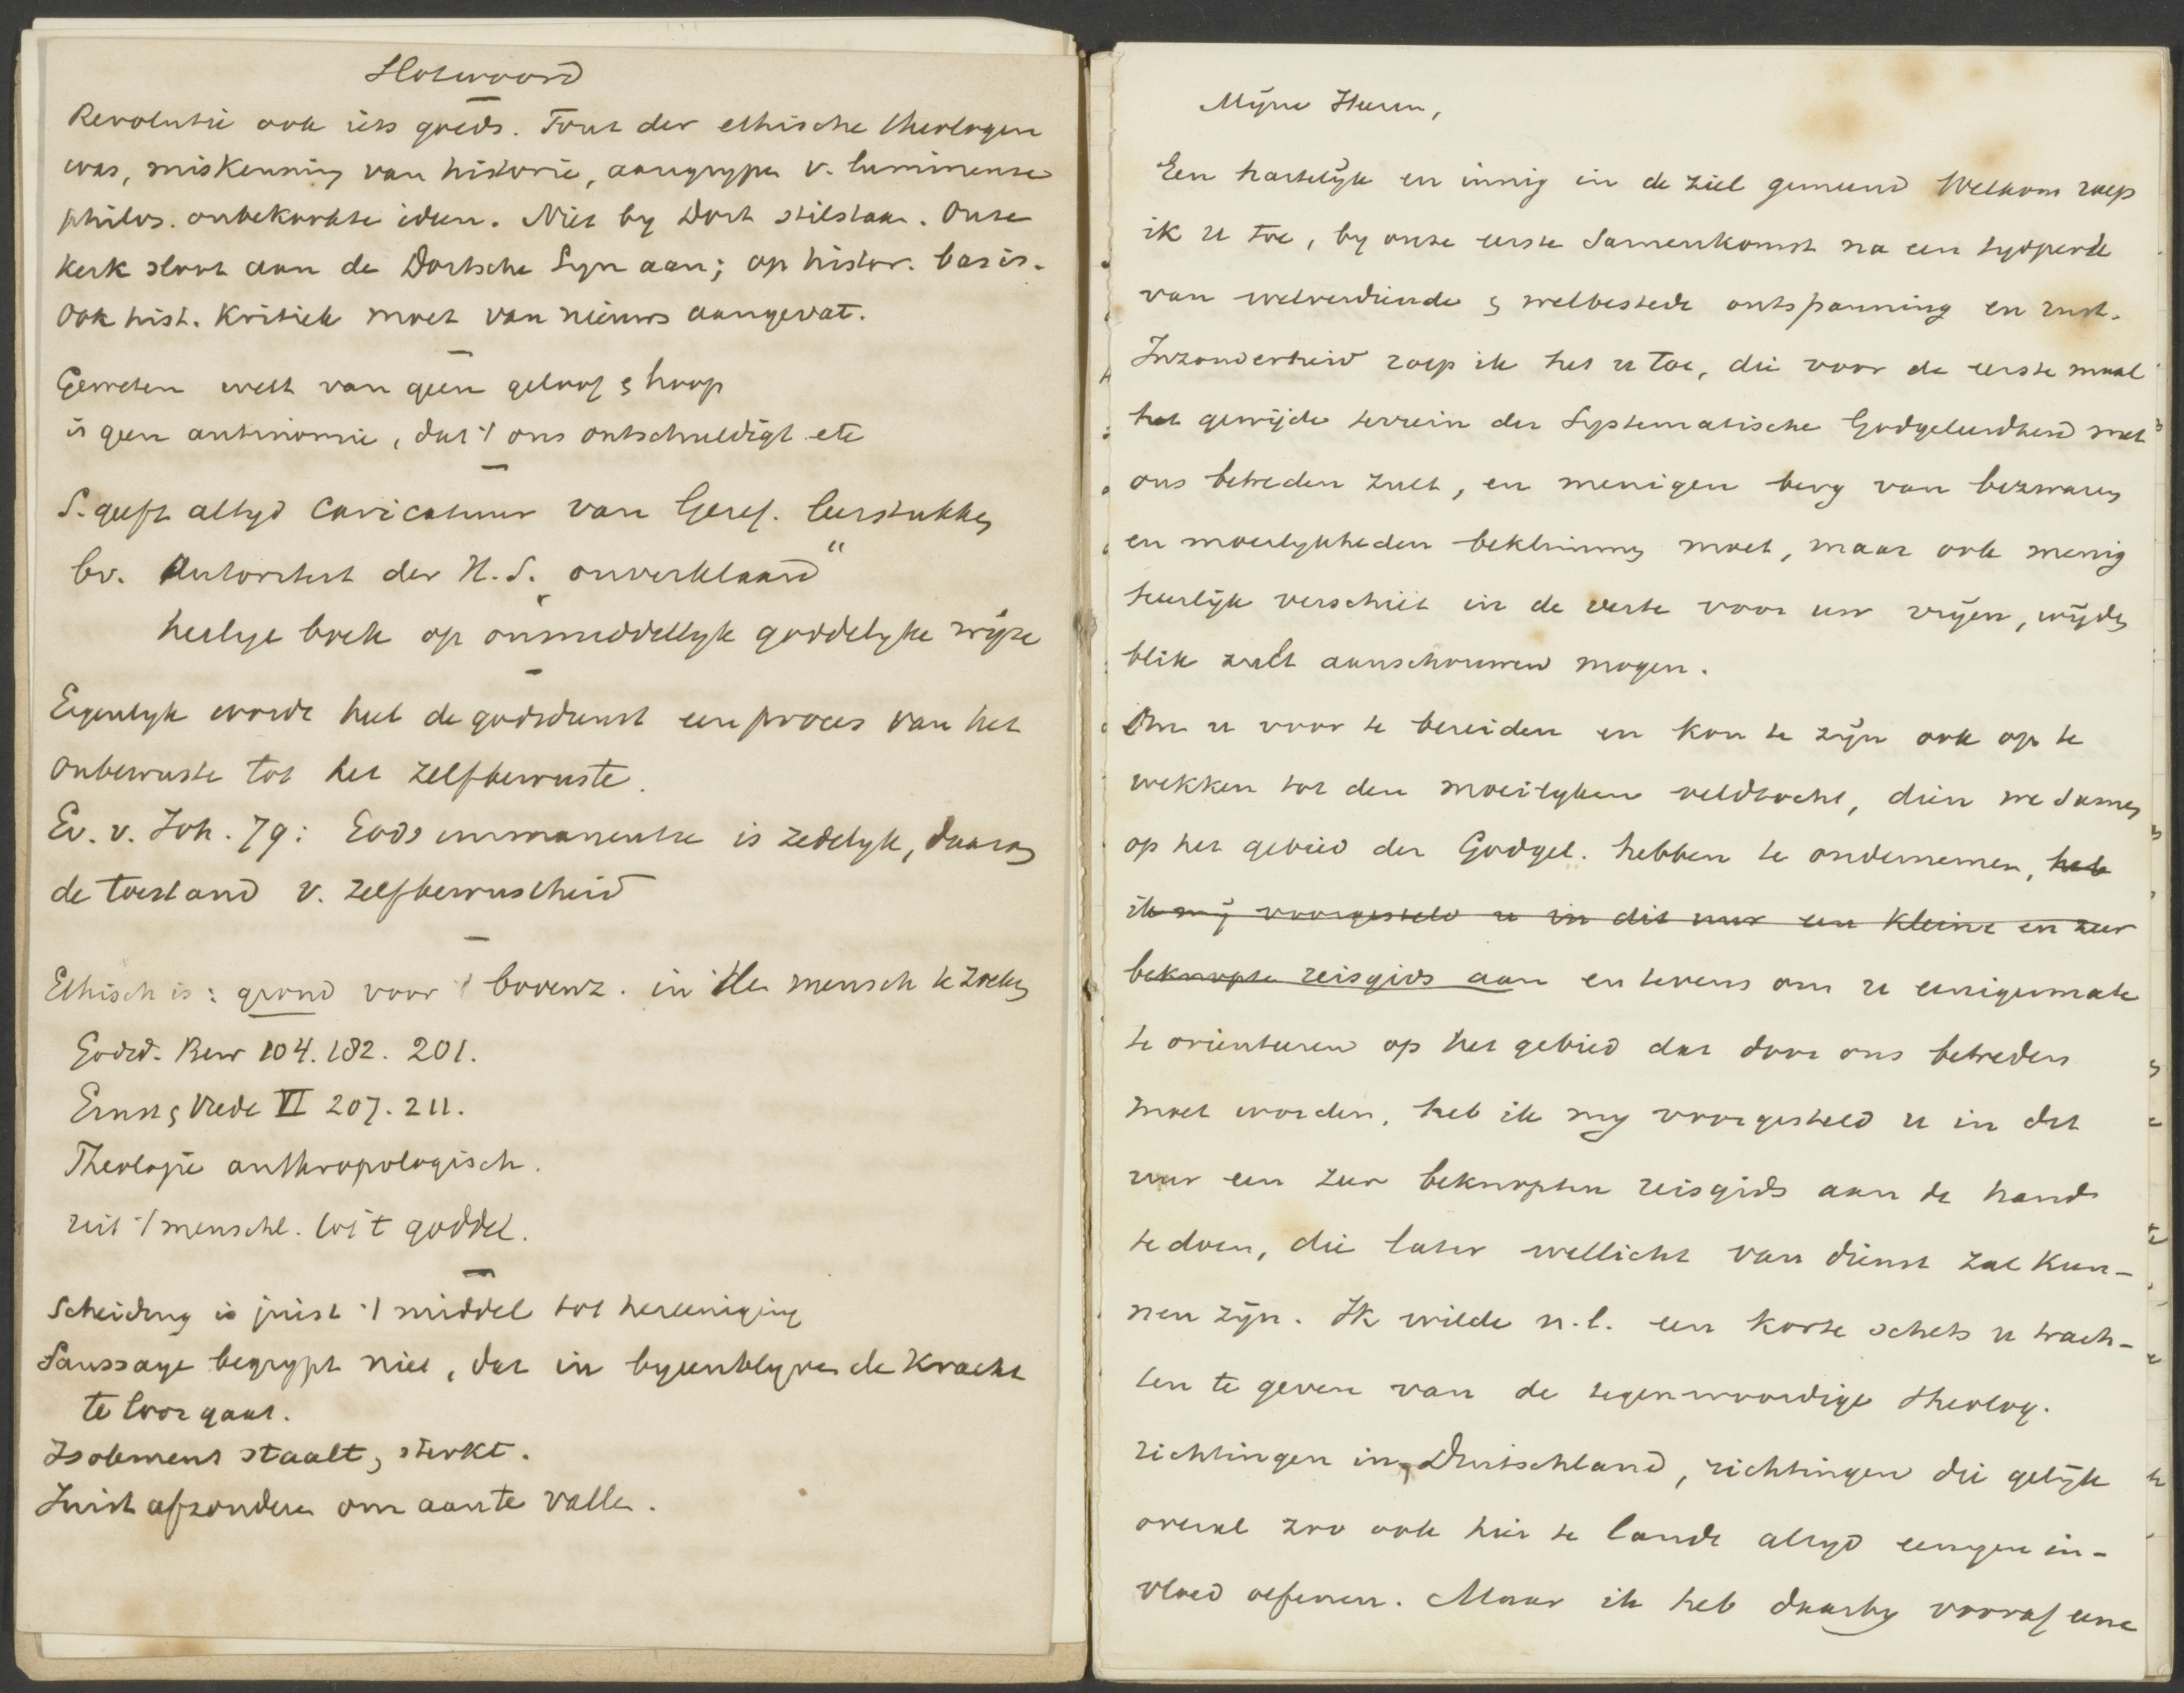 Slotwoord
Revolutie ook iets goeds. Fout der ethische theologen
was, miskenning van historie, aangrypen v. lumineuse
philos. onbekookte ideen. Niet by Dort stilstaan. Onze
Kerk sloot aan de Dortsche Syn aan; op histor. basis.
Ook hist. Kritiek moet van nieuws aangevat.
Geweten weet van geen geloof & hoop
is geen antinomie, dat 't ons ontschuldigt etc
S. geeft altyd caricatuur van Geref. leerstukken
bv. Autoriteit der H.S. „onverklaard"
heilige boek op onmiddellyk goddelyke wijze
Eigenlyk wordt heel de godsdienst een proces van het
onbewuste tot het zelfbewuste.
Ev. v. Joh. 79: Gods immanentie is zedelyk, daarom
de toestand v. zelfbewustheid
Ethisch is: grond voor 't bovenz. in den mensch te zoeken
Godsd. Bew 104. 182. 201.
Ernst & Vrede VI 207. 211.
Theologie anthropologisch.
uit 't menschl. tot 't goddel.
Scheiding is juist 't middel tot hereeniging
Saussaye begrypt niet, dat in byeenblyven de Kracht
te loor gaat.
Isolement staalt, sterkt.
Juist afzonderen om aan te vallen.
Mijne Heeren,
Een hartelijk en innig in de ziel gemeend Welkom roep
ik u toe, by onze eerste Samenkomst na een tydperk
van welverdiende & welbestede ontspanning en rust.
Inzonderheid roep ik het u toe, die voor de eerste maal
het gewijde terrein der Systematische Godgeleerdheid met
ons betreden zult, en menigen berg van bezwaren
en moeilykheden beklimmen moet, maar ook menig
heerlijk verschiet in de verte voor uw vrijen, wijden
blik zult aanschouwen mogen.
Om u voor te bereiden en kon te zijn ook op te
wekken tot den moeilyken veldtocht, dien we samen
op het gebied der Godgel. hebben te ondernemen, heb
ik mij voorgesteld u in dit uur een kleine en zeer
beknopte reisgids aan en tevens om u eenigermate
te orienteeren op het gebied dat door ons betreden
moet worden, heb ik my voorgesteld u in dit
uur een zeer beknopten reisgids aan de hand
te doen, die later wellicht van dienst zal kun-
nen zijn. Ik wilde n.l. een korte schets u trach-
ten te geven van de tegenwoordige theolog.
richtingen in Duitschland, richtingen die gelijk
overal zoo ook hier te lande altyd eenigen in-
vloed oefenen. Maar ik heb daarby vooraf eene